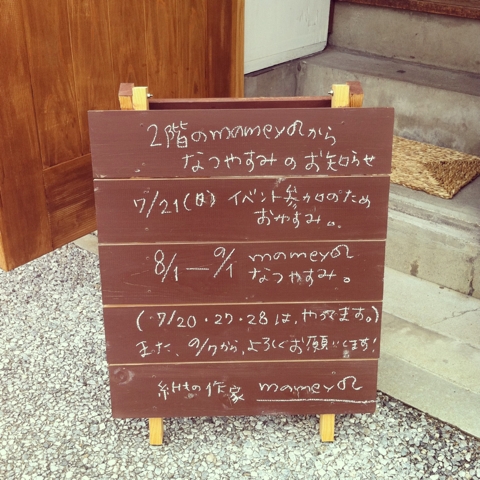 2階のmameyから
なつやすみのお知らせ
7/21(日) イベント参加のため
おやすみ。
8/1―9/1 mamey
なつやすみ。
(7/20・27・28は、やってます。)
また、9/7から、よろしくお願いします!
紙もの作家 mamey